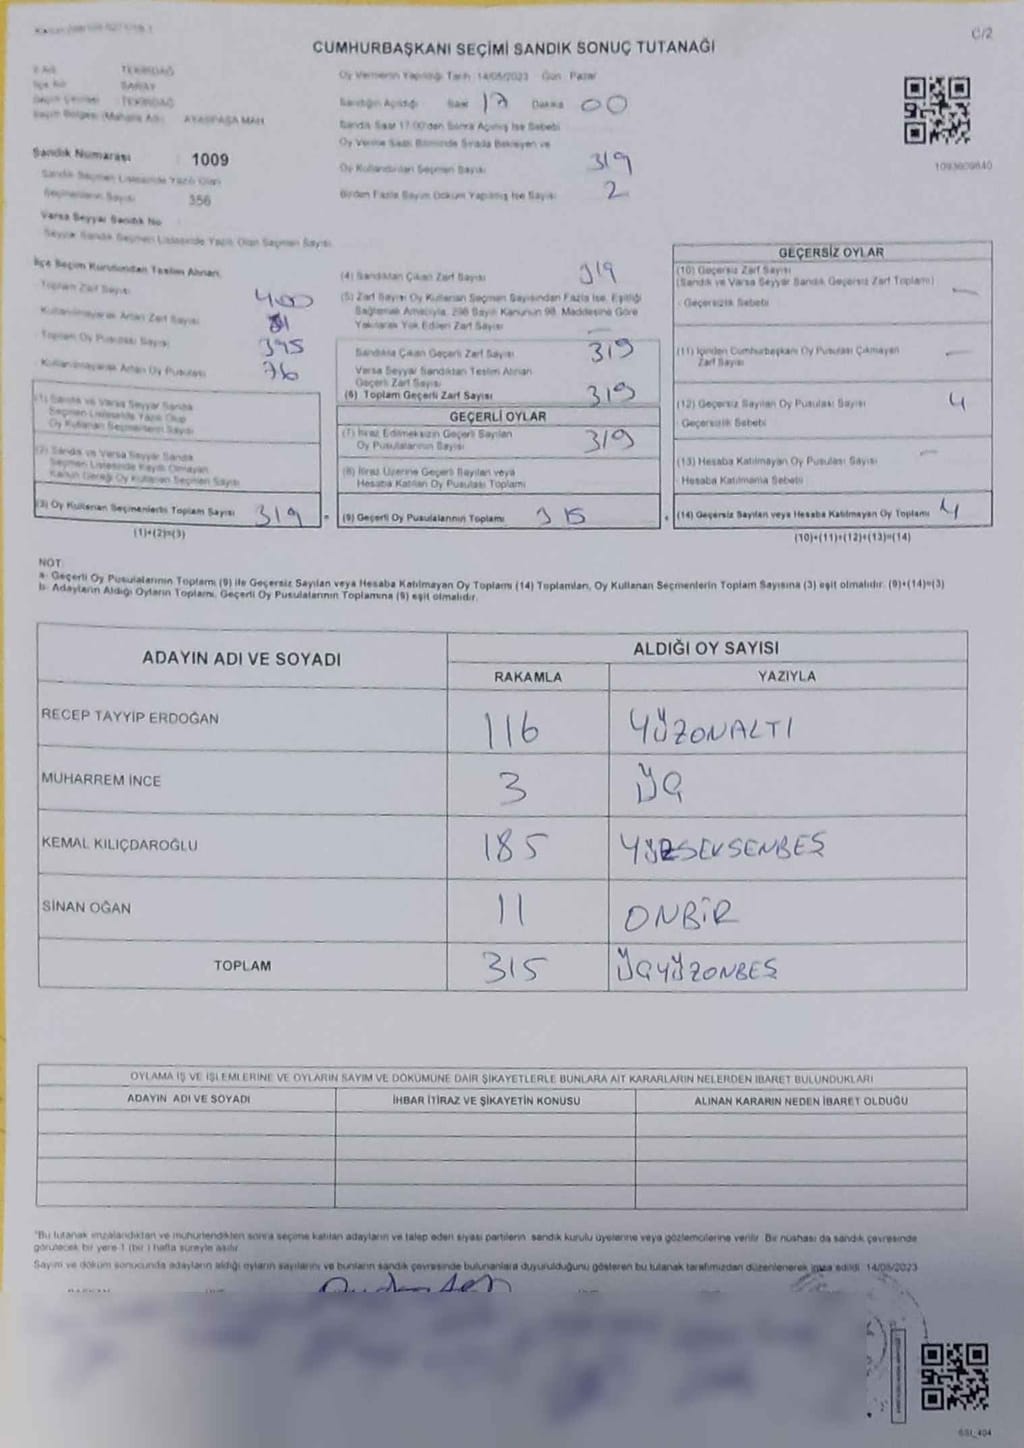 C/2
CUMHURBAŞKANI SEÇİMİ SANDIK SONUÇ TUTANAĞI
İl Adı TEKİRDAĞ
İlçe Adı SARAY
Seçim Çevresi TEKİRDAĞ
Seçim Bölgesi (Mahalle Adı) AYASPAŞA MAH.
Sandık Numarası 1009
Sandık Seçmen Listesinde Yazılı Olan
Seçmenlerin Sayısı 356
Varsa Seyyar Sandık No
Seyyar Sandık Seçmen Listesinde Yazılı Olan Seçmen Sayısı
Oy Vermenin Yapıldığı Tarih 14/05/2023 Gün Pazar
Sandığın Açıldığı Saat 17 Dakika 00
Sandık Saat 17:00'den Sonra Açılmış İse Sebebi
Oy Verme Saati Bitiminde Sırada Bekleyen ve
Oy Kullandırılan Seçmen Sayısı 319
Birden Fazla Sayım Döküm Yapılmış İse Sayısı 2
1093609840
İlçe Seçim Kurulundan Teslim Alınan
Toplam Zarf Sayısı 400
Kullanılmayarak Artan Zarf Sayısı 81
Toplam Oy Pusulası Sayısı 395
Kullanılmayarak Artan Oy Pusulası 76
(1) Sandık ve Varsa Seyyar Sandık
Seçmen Listesinde Yazılı Olup
Oy Kullanan Seçmenlerin Sayısı
(2) Sandık ve Varsa Seyyar Sandık
Seçmen Listesinde Kayıtlı Olmayan
Kanun Gereği Oy Kullanan Seçmen Sayısı
(3) Oy Kullanan Seçmenlerin Toplam Sayısı 319
(1)+(2)=(3)
(4) Sandıktan Çıkan Zarf Sayısı 319
(5) Zarf Sayısı Oy Kullanan Seçmen Sayısından Fazla İse, Eşitliği
Sağlamak Amacıyla, 298 Sayılı Kanunun 98. Maddesine Göre
Yakılarak Yok Edilen Zarf Sayısı —
Sandıkta Çıkan Geçerli Zarf Sayısı 319
Varsa Seyyar Sandıktan Teslim Alınan
Geçerli Zarf Sayısı
(6) Toplam Geçerli Zarf Sayısı 319
GEÇERLİ OYLAR
(7) İtiraz Edilmeksizin Geçerli Sayılan
Oy Pusulalarının Sayısı 319
(8) İtiraz Üzerine Geçerli Sayılan veya
Hesaba Katılan Oy Pusulası Toplamı
= (9) Geçerli Oy Pusulalarının Toplamı 315
GEÇERSİZ OYLAR
(10) Geçersiz Zarf Sayısı
(Sandık ve Varsa Seyyar Sandık Geçersiz Zarf Toplamı) —
Geçersizlik Sebebi
(11) İçinden Cumhurbaşkanı Oy Pusulası Çıkmayan
Zarf Sayısı —
(12) Geçersiz Sayılan Oy Pusulası Sayısı 4
Geçersizlik Sebebi
(13) Hesaba Katılmayan Oy Pusulası Sayısı —
Hesaba Katılmama Sebebi
+ (14) Geçersiz Sayılan veya Hesaba Katılmayan Oy Toplamı 4
(10)+(11)+(12)+(13)=(14)
NOT
a- Geçerli Oy Pusulalarının Toplamı (9) ile Geçersiz Sayılan veya Hesaba Katılmayan Oy Toplamı (14) Toplamları, Oy Kullanan Seçmenlerin Toplam Sayısına (3) eşit olmalıdır. (9)+(14)=(3)
b- Adayların Aldığı Oyların Toplamı, Geçerli Oy Pusulalarının Toplamına (9) eşit olmalıdır.
ADAYIN ADI VE SOYADI ALDIĞI OY SAYISI
RAKAMLA YAZIYLA
RECEP TAYYİP ERDOĞAN 116 YÜZONALTI
MUHARREM İNCE 3 ÜÇ
KEMAL KILIÇDAROĞLU 185 YÜZSEKSENBEŞ
SİNAN OĞAN 11 ONBİR
TOPLAM 315 ÜÇYÜZONBEŞ
OYLAMA İŞ VE İŞLEMLERİNE VE OYLARIN SAYIM VE DÖKÜMÜNE DAİR ŞİKAYETLERLE BUNLARA AİT KARARLARIN NELERDEN İBARET BULUNDUKLARI
ADAYIN ADI VE SOYADI İHBAR İTİRAZ VE ŞİKAYETİN KONUSU ALINAN KARARIN NEDEN İBARET OLDUĞU
*Bu tutanak imzalandıktan ve mühürlendikten sonra seçime katılan adayların ve talep eden siyasi partilerin sandık kurulu üyelerine veya gözlemcilerine verilir. Bir nüshası da sandık çevresinde
görülecek bir yere 1 (bir) hafta süreyle asılır.
Sayım ve döküm sonucunda adayların aldığı oyların sayılarını ve bunların sandık çevresinde bulunanlara duyurulduğunu gösteren bu tutanak tarafımızdan düzenlenerek imza edildi. 14/05/2023